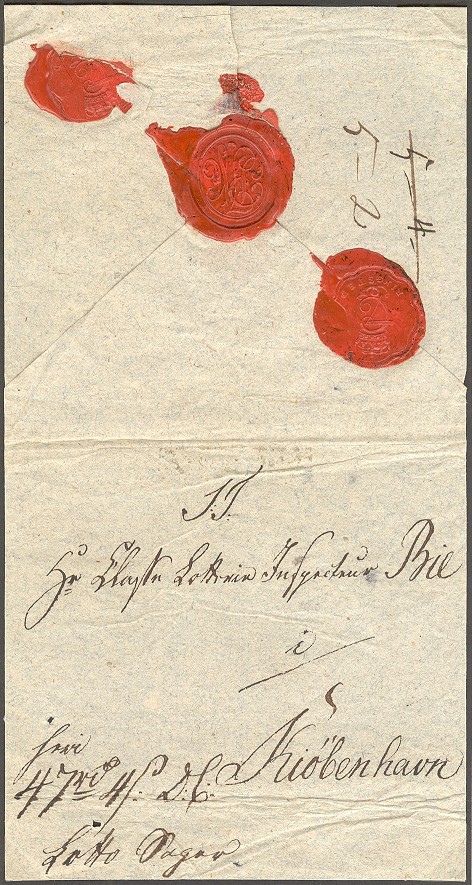 5 — 4
5 — 2
S: T:
Hr Classe Lotterie Inspecteur Bie
i
Kiöbenhavn
hvri
47 rd 4 s: D. C.
Lotto Sager